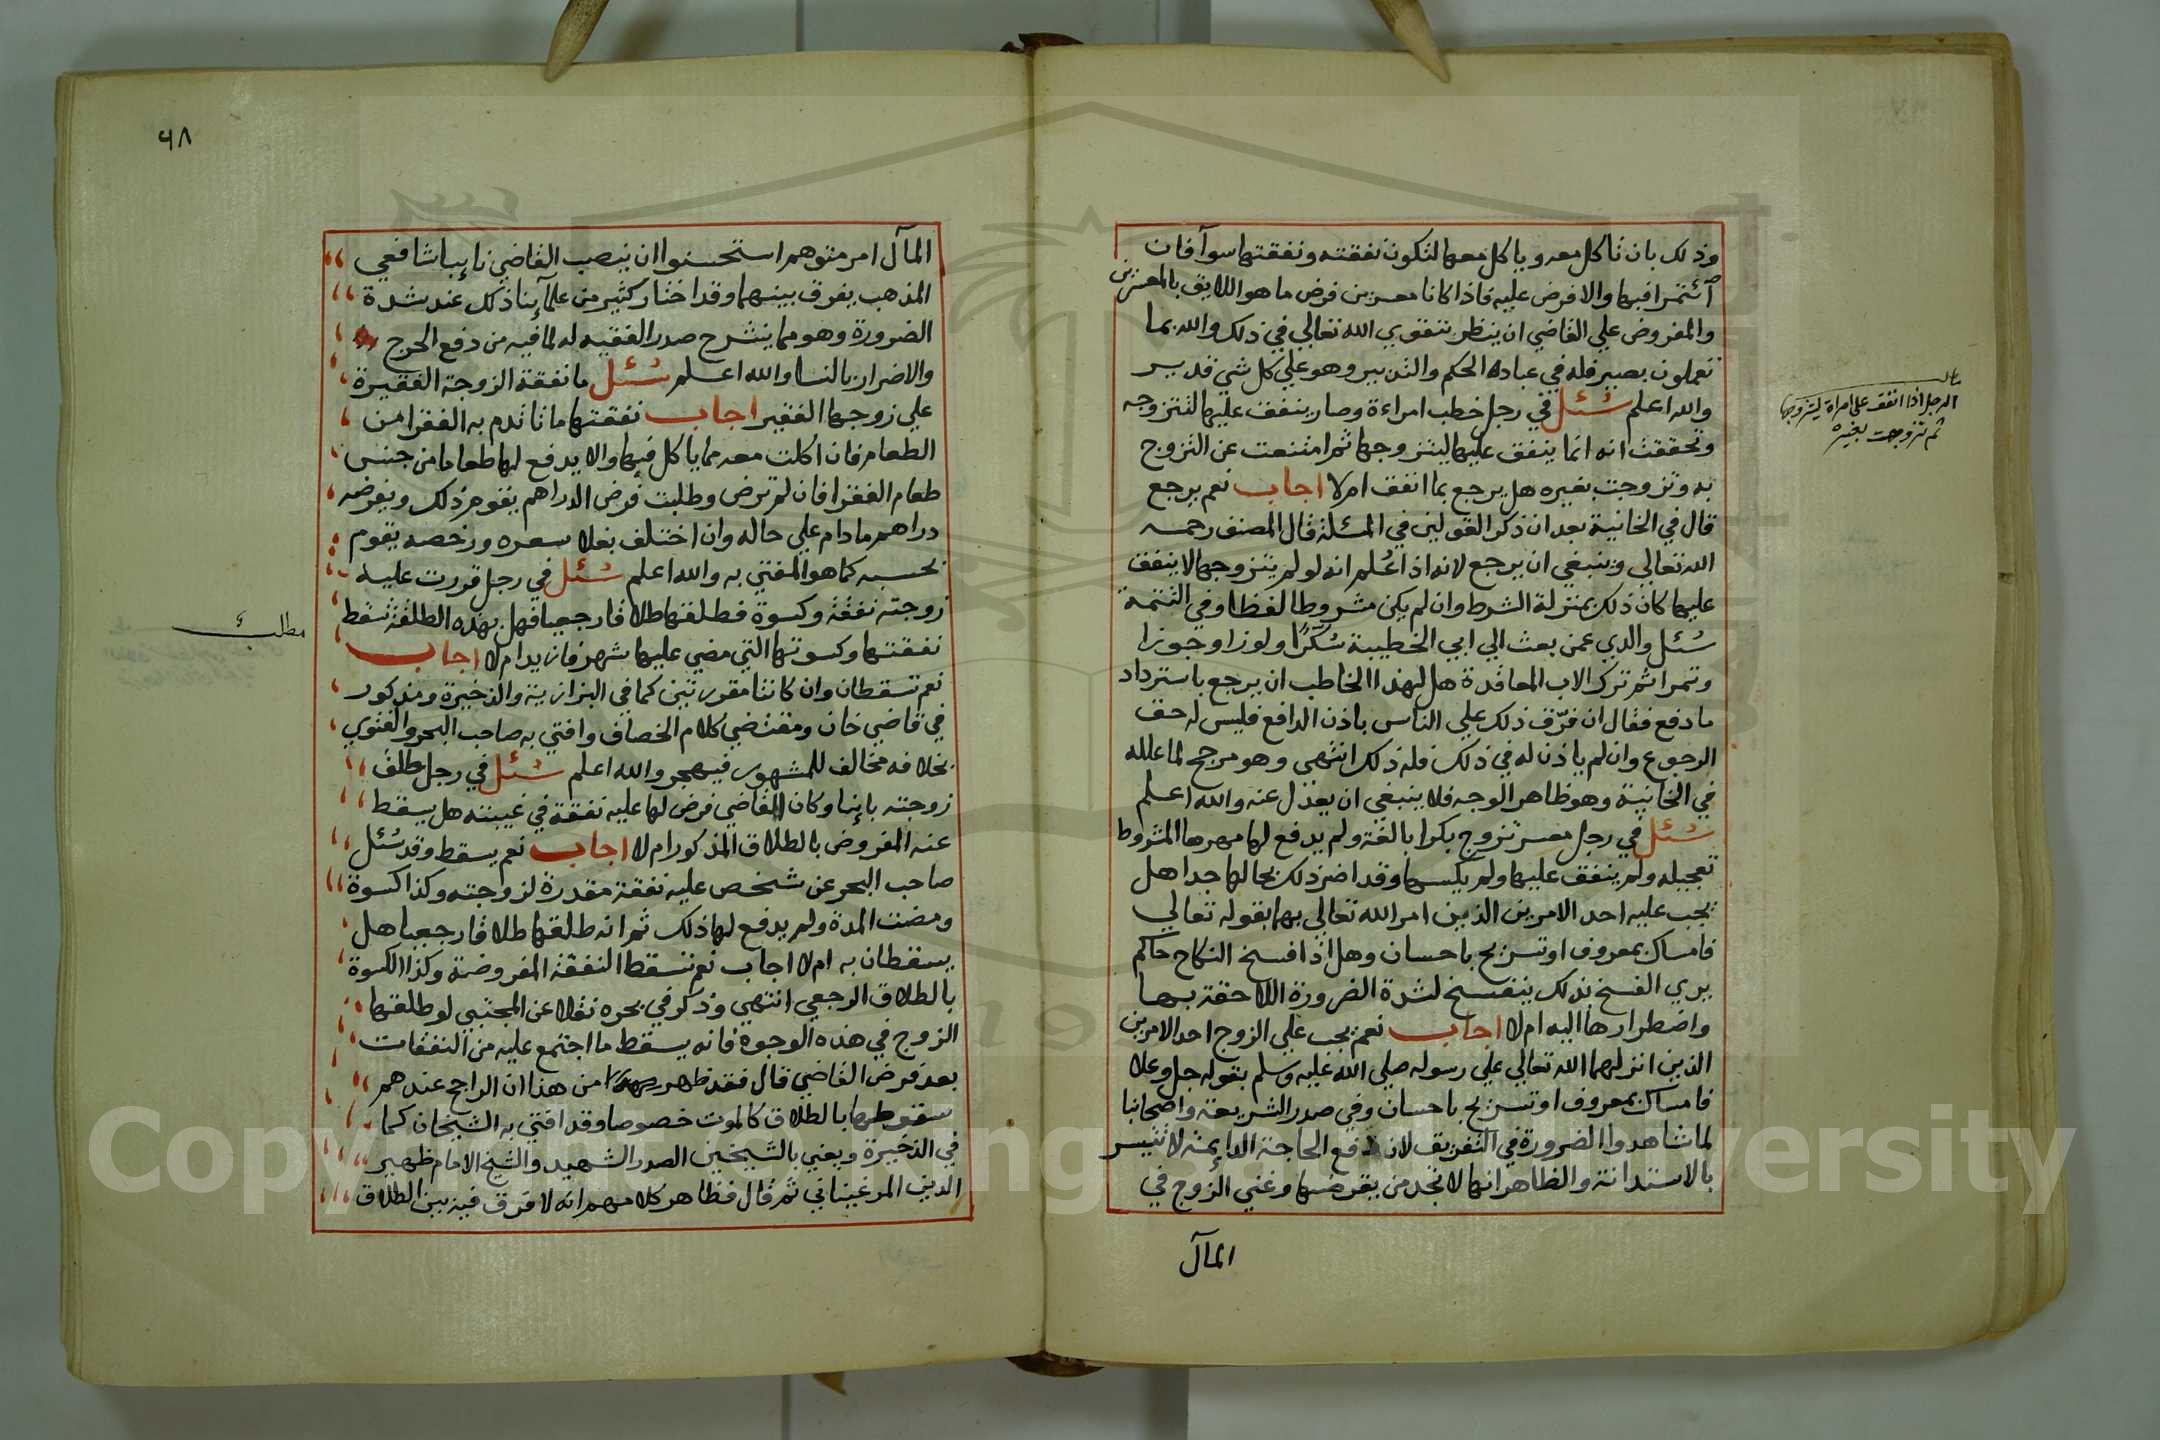 وذلك بان تاكل معه وياكل معها لتكون نفقته ونفقتها سوآ فان
آئتمرا فبها والا فرض عليه فاذا كانا معسرين فرض ما هو اللايق بالمعسرين
والمفروض علي القاضي ان ينظر بتقوي الله تعالي في ذلك والله بما
تعملون بصير فله في عباده الحكم والتدبير وهو علي كل شي قدير
والله اعلم سُئل في رجل خطب امراءة وصار ينفق عليها لتتزوجه
وتحققت انه انما ينفق عليها ليتزوجها ثم امتنعت عن التزوج
به وتزوجت بغيره هل يرجع بما انفق ام لا اجاب نعم يرجع
قال في الخانية بعد ان ذكر القولين في المسئلة قال المصنف رحمه
الله تعالي وينبغي ان يرجع لانه اذا عُلم انه لو لم يتزوجها لا ينفق
عليها كان ذلك بمنزلة الشرط وان لم يكن مشروطا لفظا وفي التتمة
سُئل والدي عمن بعث الي ابي الخطيبة سُكّرًا ولوزا وجوزا
وتمرا ثم ترك الاب المعاقدة هل لهذا الخاطب ان يرجع باسترداد
ما دفع فقال ان فرّق ذلك علي الناس باذن الدافع فليس له حق
الرجوع وان لم ياذن له في ذلك فله ذلك انتهي وهو مرجح لما علله
في الخانية وهو ظاهر الوجه فلا ينبغي ان يعدل عنه والله اعلم
سُئل في رجل معسر تزوج بكرا بالغة ولم يدفع لها مهرها المشروط
تعجيله ولم ينفق عليها ولم يكسها وقد اضر ذلك بحالها جدا هل
يجب عليه احد الامرين الذين امر الله تعالي بهما بقوله تعالي
فامساك بمعروف او تسريح باحسان وهل اذا فسخ النكاح حاكم
يري الفسخ بذلك ينفسخ لشدة الضرورة اللاحقة بها
واضطرارها اليه ام لا اجاب نعم يجب علي الزوج احد الامرين
الذين انزلهما الله تعالي علي رسوله صلي الله عليه وسلم بقوله جل وعلا
فامساك بمعروف او تسريح باحسان وفي صدر الشريعة واصحابنا
لما شاهدوا الضرورة في التفريق لان دفع الحاجة الدايمة لا تتيسر
بالاستدانة والظاهر انها لا تجد من يقرضها وغني الزوج في
المآل
الرجل اذا انفق على امراة ليتزوجها
ثم تزوجت بغيره
٦٨
المآل امر متوهم استحسنوا ان ينصب القاضي نايبا شافعي
المذهب يفرق بينهما وقد اختار كثير من علمآئنا ذلك عند شدة
الضرورة وهو مما ينشرح صدر الفقيه له لما فيه من دفع الحرج
والاضرار بالنسا والله اعلم سُئل ما نفقة الزوجة الفقيرة
علي زوجها الفقير اجاب نفقتها ما تاتدم به الفقرا من
الطعام فان اكلت معه مما ياكل فبها والا يدفع لها طعاما من جنس
طعام الفقرا فان لم ترض وطلبت فرض الدراهم يقوم ذلك ويفرضه
دراهم ما دام علي حاله وان اختلف بغلا سعره ورخصه يقوم
بحسبه كما هو المفتي به والله اعلم سُئل في رجل قررت عليه
زوجته نفقة وكسوة فطلقها طلاقا رجعيا فهل بهذه الطلقة تسقط
نفقتها وكسوتها التي مضي عليها شهر فازيد ام لا اجاب
نعم تسقطان وان كانتا مقررتين كما في البزازية والذخيرة ومذكور
في قاضي خان ومقتضي كلام الخصاف وافتي به صاحب البحر والفتوي
بخلافه مخالف للمشهور فيهجر والله اعلم سُئل في رجل طلق
زوجته باينا وكان القاضي فرض لها عليه نفقة في غيبته هل يسقط
عنه المفروض بالطلاق المذكور ام لا اجاب نعم يسقط وقد سُئل
صاحب البحر عن شخص عليه نفقة مقدرة لزوجته وكذا كسوة
ومضت المدة ولم يدفع لها ذلك ثم انه طلقها طلاقا رجعيا هل
يسقطان به ام لا اجاب نعم تسقط النفقة المفروضة وكذا الكسوة
بالطلاق الرجعي انتهي وذكر في بحره نقلا عن المجتبي لو طلقها
الزوج في هذه الوجوه فانه يسقط ما اجتمع عليه من النفقات
بعد فرض القاضي قال فقد ظهر من هذا ان الراجح عندهم
سقوطها بالطلاق كالموت خصوصا وقد افتي به الشيخان كما
في الذخيرة ويعني بالشيخين الصدر الشهيد والشيخ الامام ظهير
الدين المرغيناني ثم قال فظاهر كلامهم انه لا فرق فيه بين الطلاق
مطلب
Copyright © King Saud University